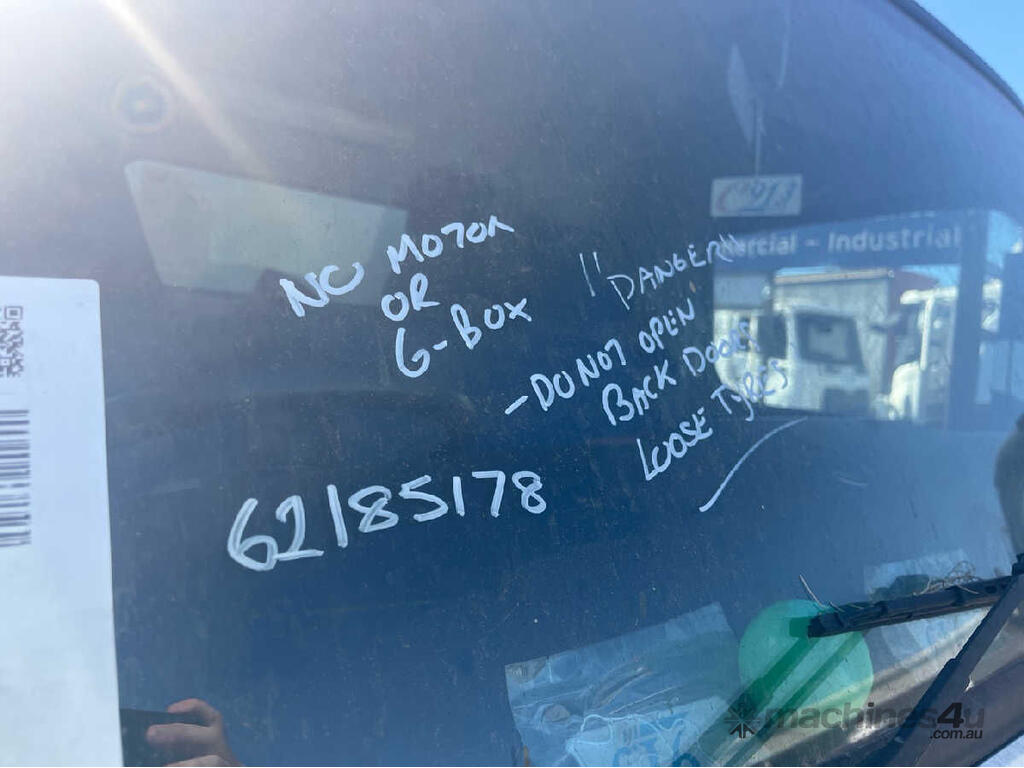 NO MOTOR
OR
G-BOX
"DANGER"
-DO NOT OPEN
BACK DOORS
LOOSE TYRES
62185178
ercial - Industrial
machines4u
.com.au